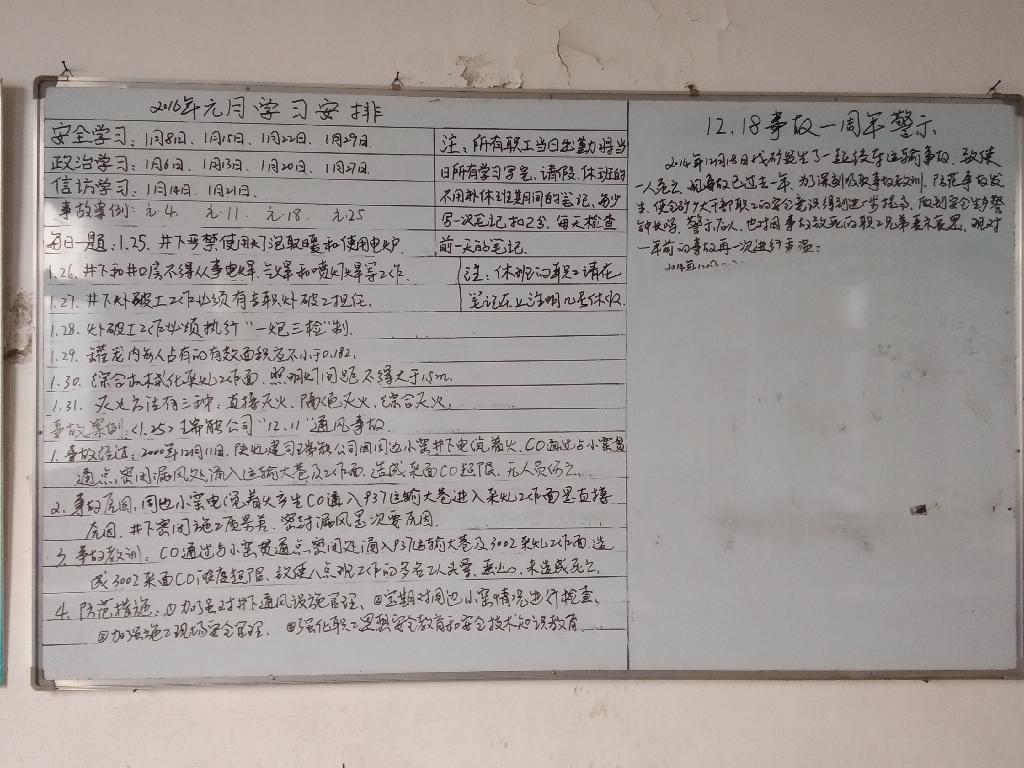 2016年元月学习安排
安全学习：1月8日、1月15日、1月22日、1月29日.
政治学习：1月6日、1月13日、1月20日、1月27日.
信访学习：1月14日、1月21日.
事故案例：元.4. 元.11. 元.18. 元.25
每日一题：1.25. 井下严禁使用灯泡取暖和使用电炉.
1.26. 井下和井口房不得从事电焊、气焊和喷灯焊等工作.
1.27. 井下爆破工工作必须有专职爆破工担任.
1.28. 爆破工作必须执行"一炮三检"制.
1.29. 罐笼内每人占有的有效面积应不小于0.18㎡.
1.30. 综合机械化采煤工作面，照明灯间距不得大于15m.
1.31. 灭火方法有三种：直接灭火、隔绝灭火、综合灭火.
事故案例：<1.25> 瑞能公司"12.11"通风事故.
1. 事故经过：2000年12月11日，陕煤建司瑞能公司因周边小窑井下电缆着火、CO通过与小窑贯
通点密闭漏风处涌入运输大巷及工作面，造成采面CO超限、无人员伤亡.
2. 事故原因：周边小窑电缆着火产生CO涌入937运输大巷进入采煤工作面是直接
原因. 井下密闭施工质量差、密封漏风是次要原因.
3. 事故教训：CO通过与小窑贯通点密闭处涌入937运输大巷及3002采煤工作面，造
成3002采面CO浓度超限、致使八点班工作的多名工人头晕、恶心、未造成死亡.
4. 防范措施：①加强对井下通风设施管理. ②定期对周边小窑情况进行检查.
③加强施工现场安全管理. ④强化职工思想安全教育和安全技术知识教育.
注：所有职工当日出勤将当
日所有学习写完，请假、休班的
不用补休班期间的笔记，每少
写一次笔记扣2分，每天检查
前一天的笔记.
注：休班的职工请在
笔记本上注明几号休班.
12.18事故一周年警示
2014年12月18日我矿发生了一起绞车运输事故，致使
一人死亡，现事故已过去一年，为了深刻吸取事故教训，防范事故发
生，使全矿广大干部职工的安全意识得到进一步提高，做到安全生产警
钟长鸣、警示后人，也对因事故致死的职工兄弟表示哀思，现对
一年前的事故再一次进行重温：